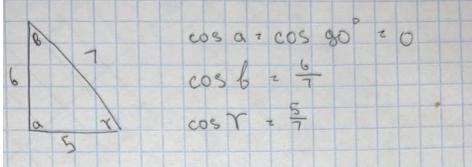 β
7
6
α
γ
5
cos α = cos 90° = 0
cos β = 6/7
cos γ = 5/7